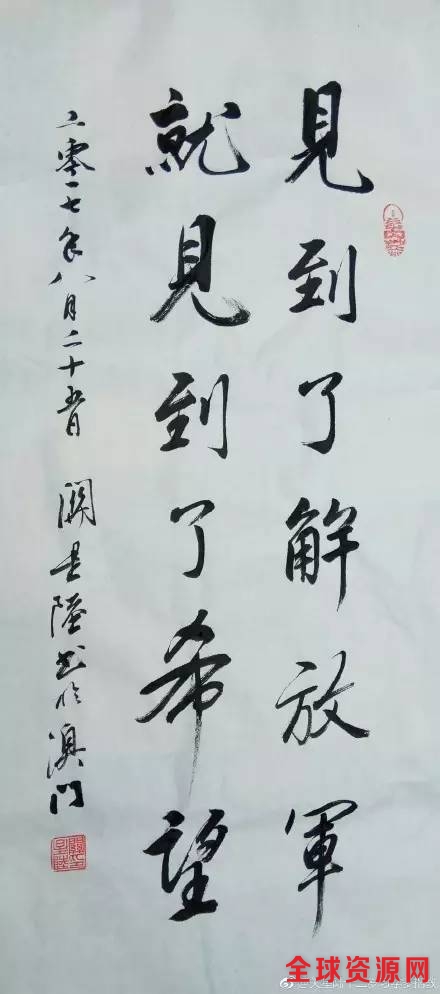 見到了解放軍
就見到了希望
二零一七年八月二十五日
書於澳門
全球资源网